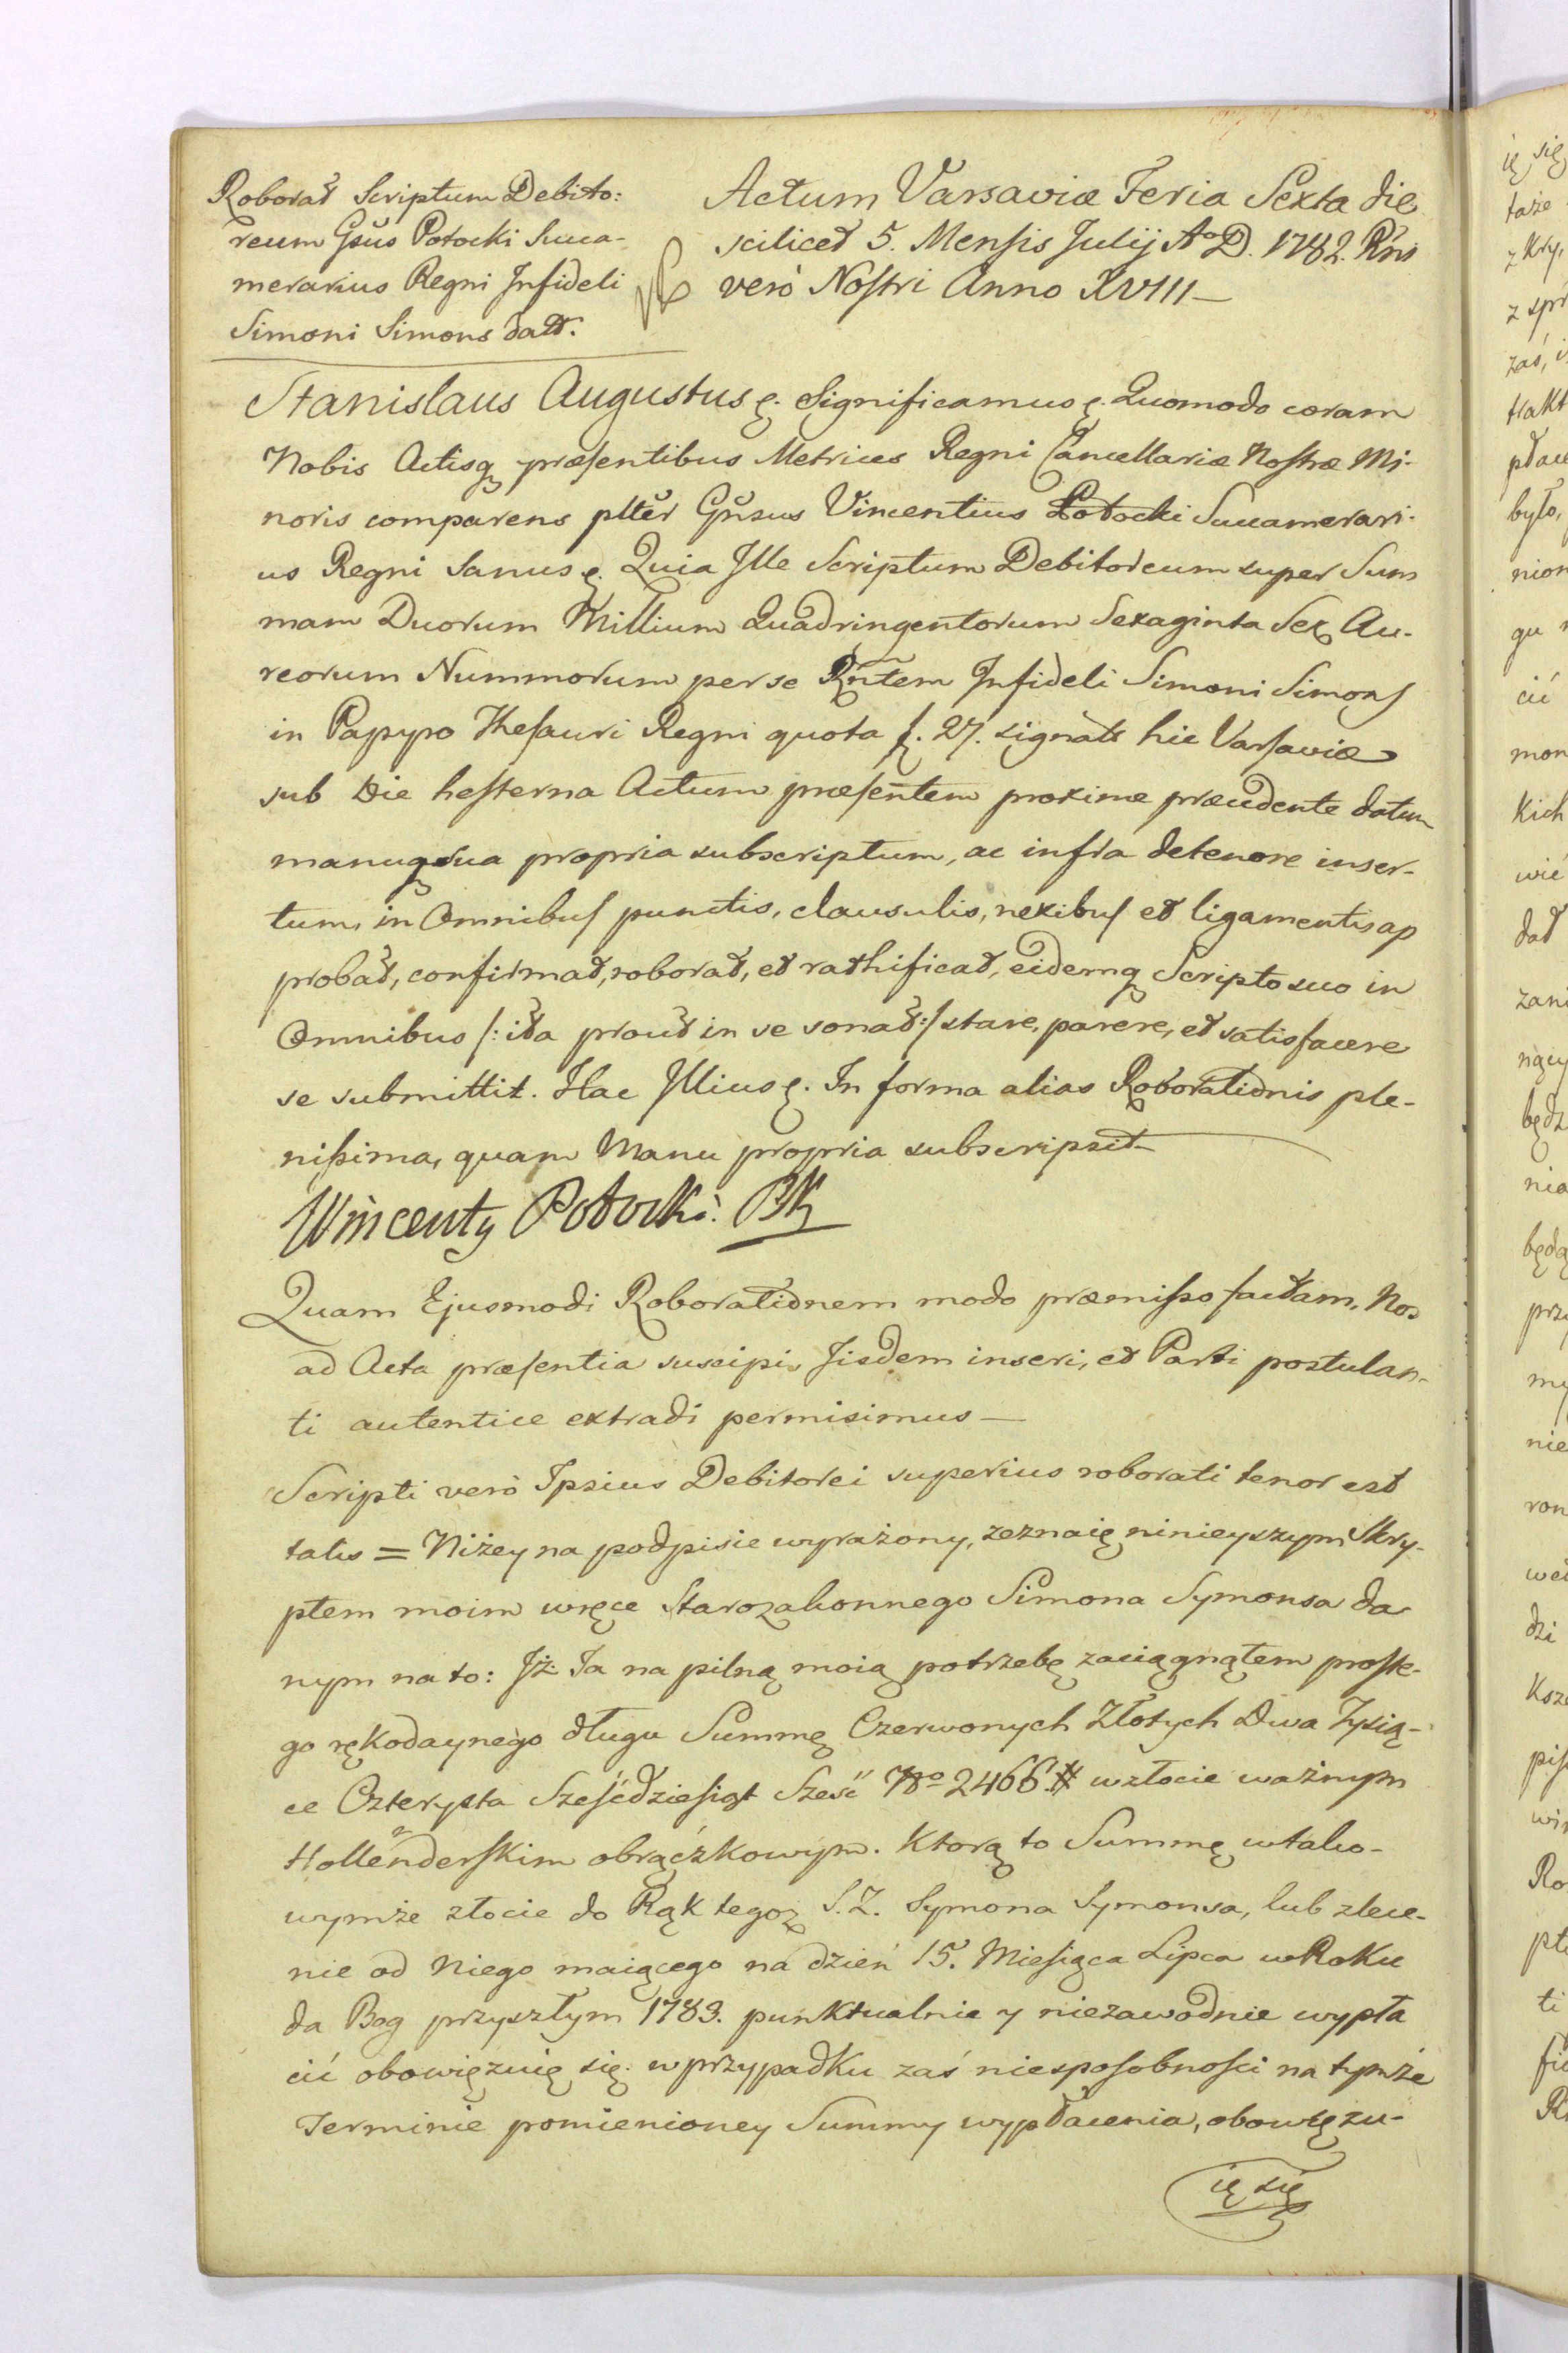 Roborat Scriptum Debito:
reum Gsus Potocki Succa-
merarius Regni Infideli
Simoni Simons datt.
Actum Varsaviæ Feria Sexta die
scilicet 5. Mensis Julij Ao D. 1782. Rni
verò Nostri Anno XVIII—
Stanislaus Augustus ę. Significamus ę. Quomodo coram
Nobis Actisq præsentibus Metrices Regni Cancellariæ Nostræ Mi-
noris comparens plter Gnsus Vincentius Potocki Succamerari-
us Regni Sanus ę. Quia Ille Scriptum Debitoreum super Sum
mam Duorum Millium Quadringentorum Sexaginta Sex Au-
reorum Nummorum per se Rntem Infideli Simoni Simons
in Papyro Thesauri Regni quota f. 27. signats hic Varsaviæ
sub Die hesterna Actum præsentem proxime præcedente datum
manuq sua propria subscriptum, ac infra de tenore inser-
tum, in Omnibus punctis, clausulis, nexibus et ligamentis ap
probat, confirmat, roborat, et rathificat, eidemq Scripto suo in
Omnibus /: ita prout in se sonat :/ stare, parere, et satisfacere
se submittit. Hac Illius ę. In forma alias Roborationis ple-
nissima, quam Manu propria subscripsit—
Wincenty Potocki. PK
Quam Ejusmodi Roborationem modo præmisso factam, Nos
ad Acta præsentia suscipi, Iisdem inseri, et Parti postulan-
ti autentice extradi permisimus—
Scripti verò Ipsius Debitorei superius roborati tenor est
talis = Niżey na podpisie wyrażony, zeznaię ninieyszym Skry-
ptem moim w ręce Starozakonnego Simona Symonsa da
nym na to: Iż Ja na pilną moią potrzebę zaciągnąłem proste-
go rękodaynego długu Summę Czerwonych Złotych Dwa Tysią-
ce Czterysta Sześćdziesiąt Sześć No 2466 # w złocie ważnym
Hollenderskim obrączkowym. Ktorą to Summę w tako-
wymże złocie do Rąk tegoż S. Z. Symona Symonsa, lub zlece-
nie od Niego maiącego na dzień 15. Miesiąca Lipca w Roku
da Bog przyszłym 1783. punktualnie y niezawodnie wypła
cić obowięzuię się. w przypadku zaś niesposobności na tymże
Terminie pomienioney Summy wypłacenia, obowięzu-
ię się